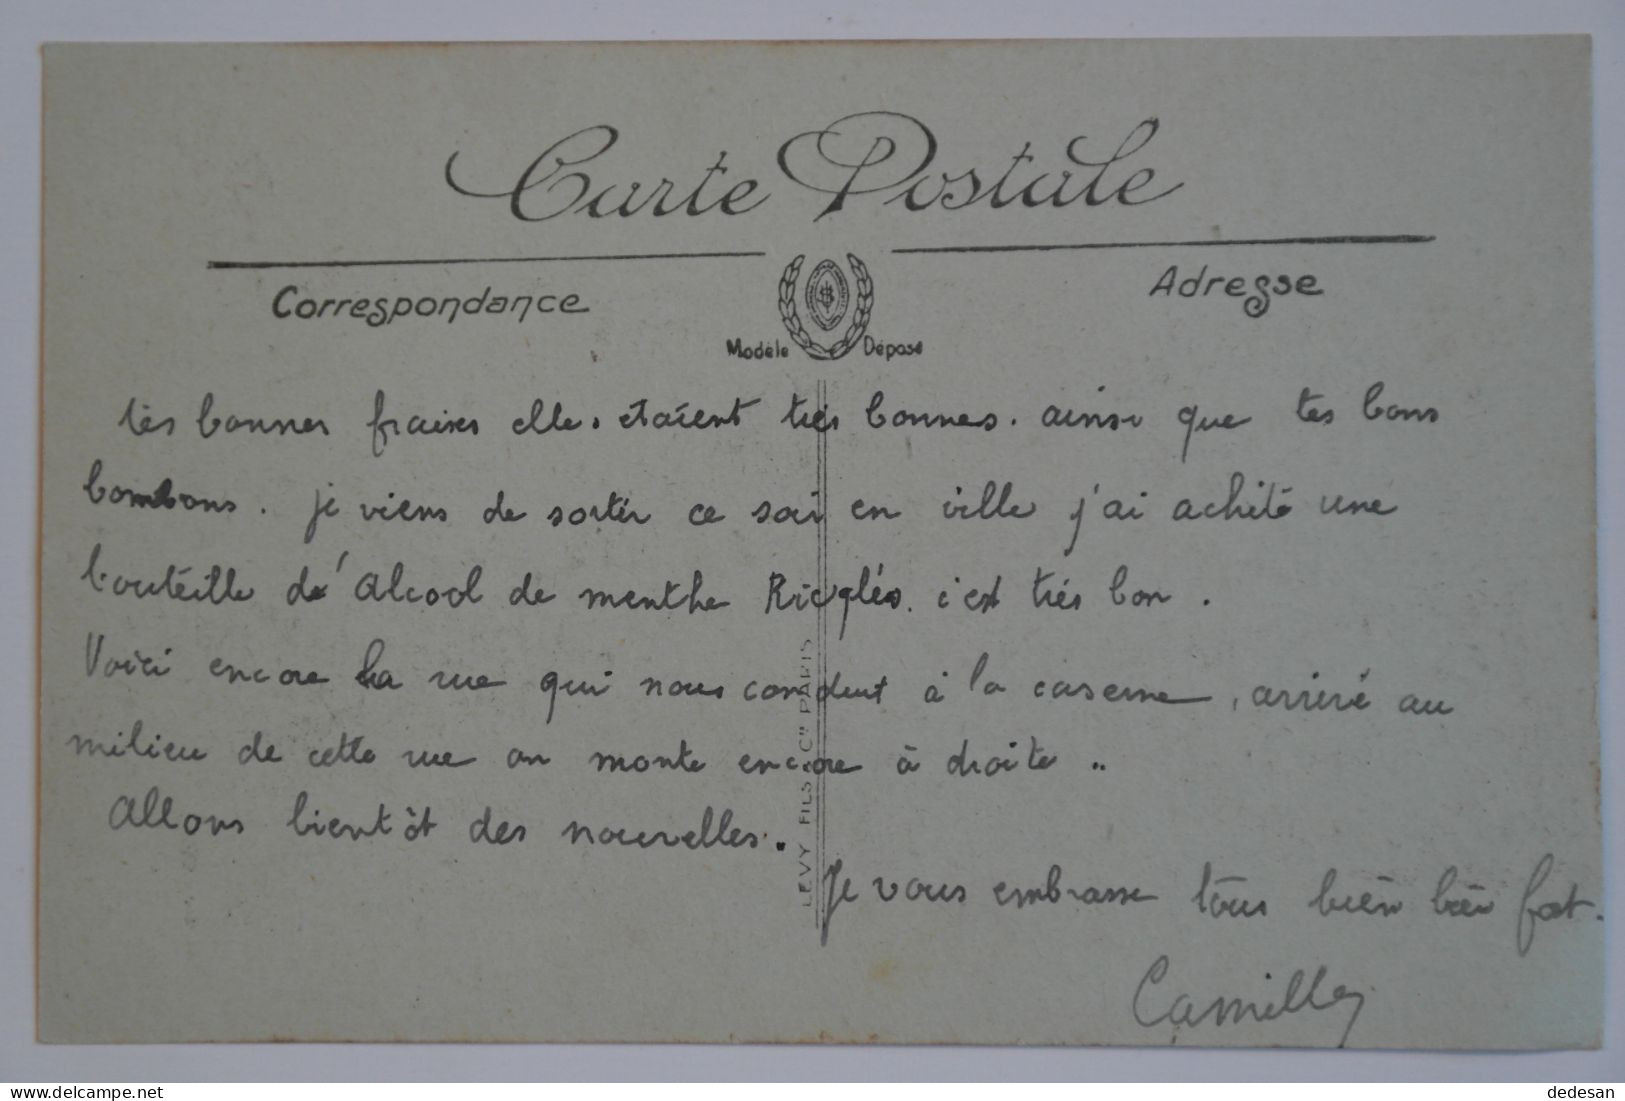 Carte Postale
Correspondance
Adresse
Modèle Déposé
tes bonnes fraises elles étaient très bonnes. ainsi que tes bons
bombons. je viens de sortir ce soir en ville j'ai acheté une
bouteille de Alcool de menthe Ricqlés. c'est trés bon.
Voici encore la rue qui nous conduit à la caserne, arrivé au
milieu de cette rue on monte encore à droite..
Allons bientôt des nouvelles.
Je vous embrasse tous bien bien fort.
Camille
LEVY FILS & Cie PARIS
dedesan